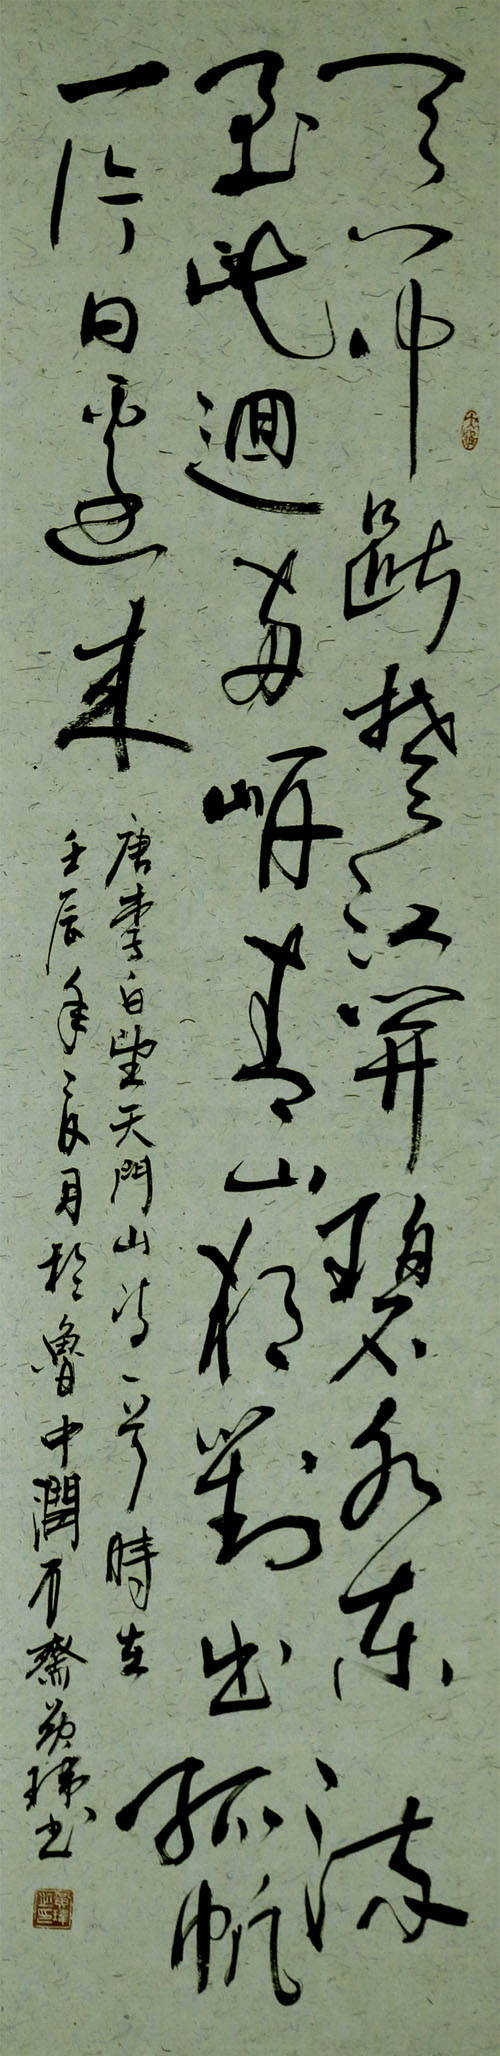 天門中斷楚江開碧水東流
至此迴兩岸青山相對出孤帆
一片日邊来
唐李白望天門山诗一首時在
壬辰年夏月於魯中潤石齋黄瑋书